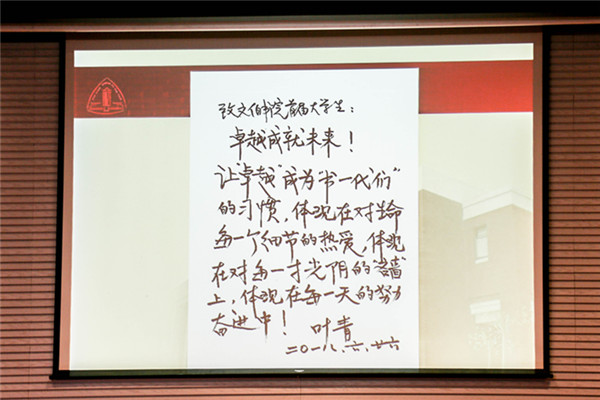 致文伯书院首届大学生：
卓越成就未来！
让"卓越"成为"书一代们"
的习惯，体现在对生命
每一个细节的热爱，体现
在对每一寸光阴的"吝啬"
上，体现在每一天的努力
奋进中！ 叶青
二〇一八、六、廿六